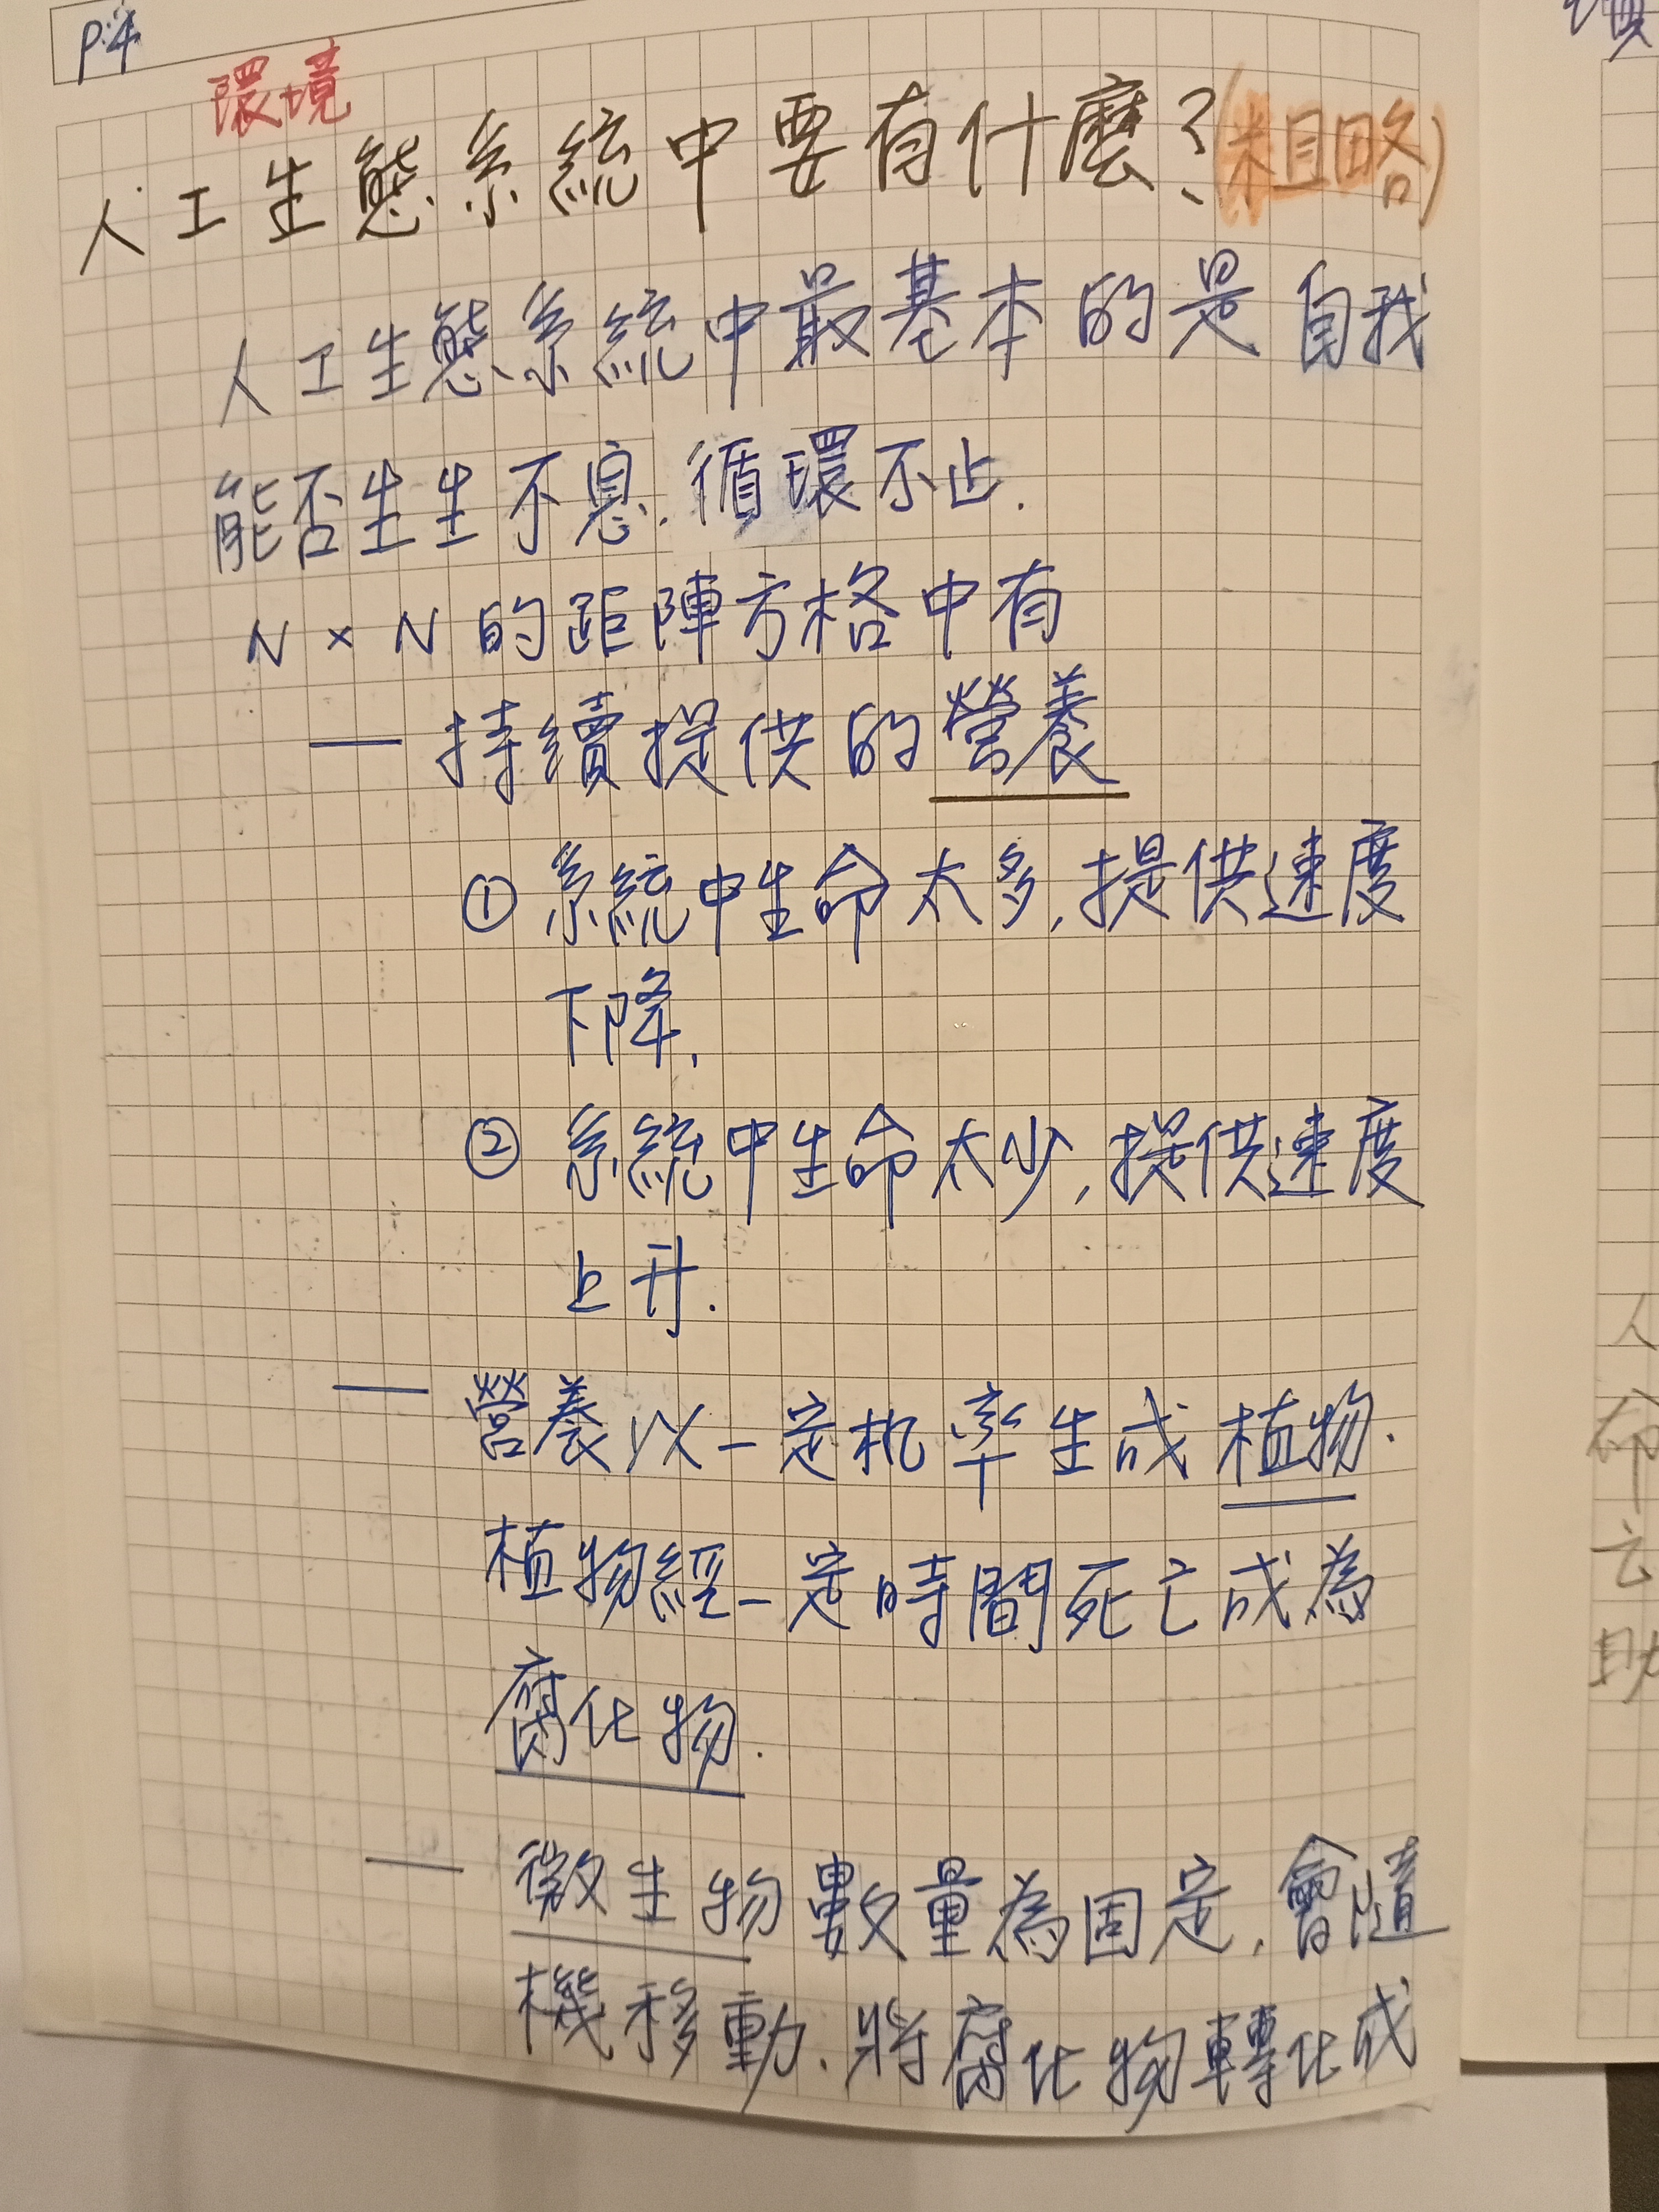 P.4
環境
人工生態系統中要有什麼?(粗略)
人工生態系統中最基本的是自我
能否生生不息.循環不止.
N×N的距陣方格中有
— 持續提供的營養
① 系統中生命太多,提供速度
下降.
② 系統中生命太少,提供速度
上升.
— 營養以一定机率生成植物.
植物經一定時間死亡成為
腐化物.
— 微生物數量為固定,會隨
機移動.將腐化物轉化成
人
命
云
助